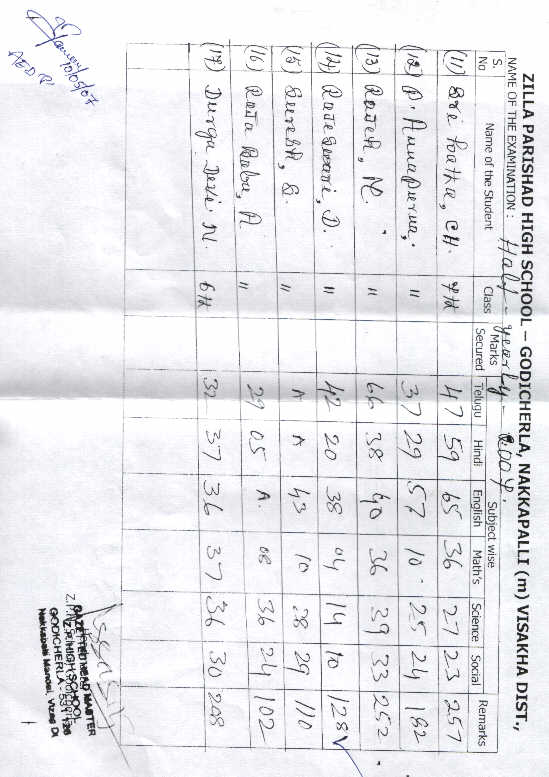 ZILLA PARISHAD HIGH SCHOOL – GODICHERLA, NAKKAPALLI (m) VISAKHA DIST.,
NAME OF THE EXAMINATION : Half - yearly - 2004.
S. No Name of the Student Class Marks Secured Subject wise Remarks
Telugu Hindi English Math's Science Social
(11) Sri Latha, CH. 7th 47 59 65 36 27 23 257
(12) P. Annapurna, " 37 29 57 10. 25 24 182
(13) Rajesh, M. " 66 38 40 36 39 33 252
(14) Rajeswari, D. " 42 20 38 04 14 10 128
(15) Suresh, G. " A A 43 10 28 29 110
(16) Raja Baba, A " 29 05 A. 08 36 24 102
(17) Durga Devi. N. 6th 32 37 36 37 36 30 208
10/05/07
GAZETTED HEAD MASTER
Z.P. HIGH SCHOOL
GODICHERLA - 531 126
Nakkapalli Mandal, Vizag Dt